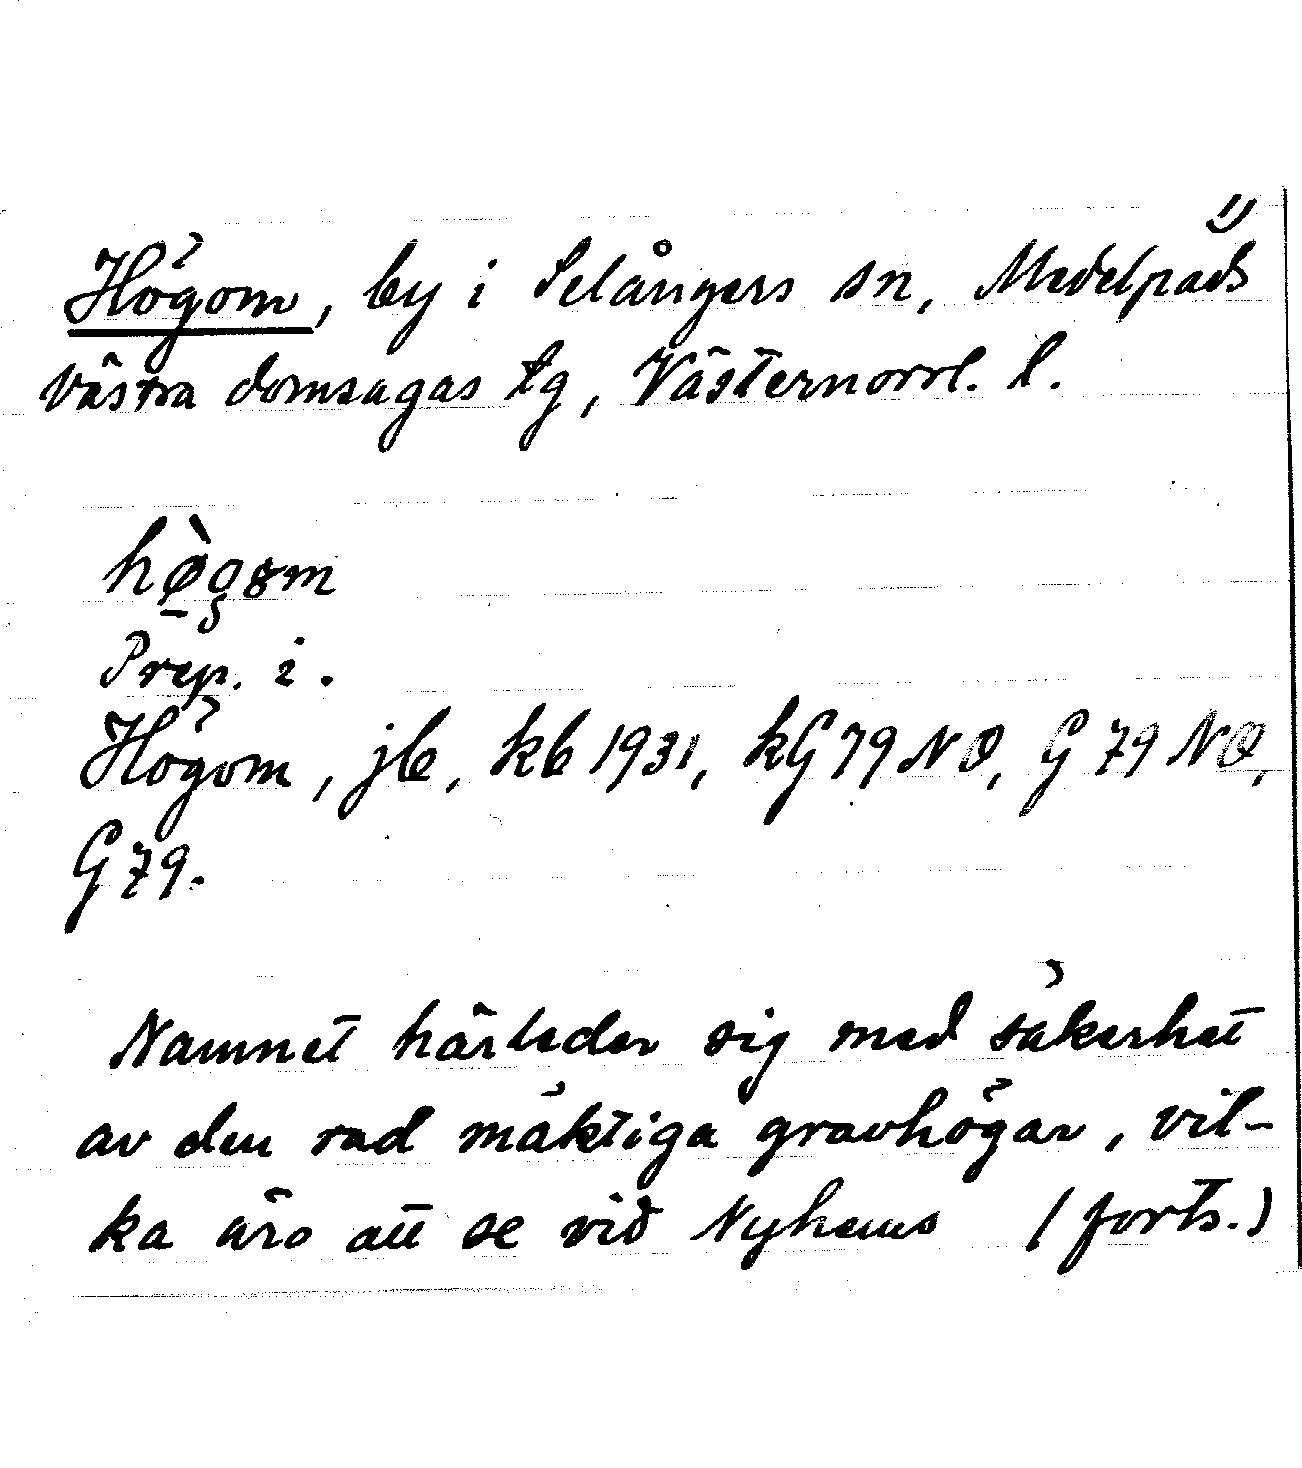 1)
Högom, by i Selångers sn, Medelpads
västra domsagas tg, Västernorrl. l.
Prep. i.
Högom, jb, kb 1931, kG 79 NO, G 79 NO,
G 79.
Namnet härleder sig med säkerhet
av den rad mäktiga gravhögar, vil-
ka äro att se vid Nyhems (forts.)